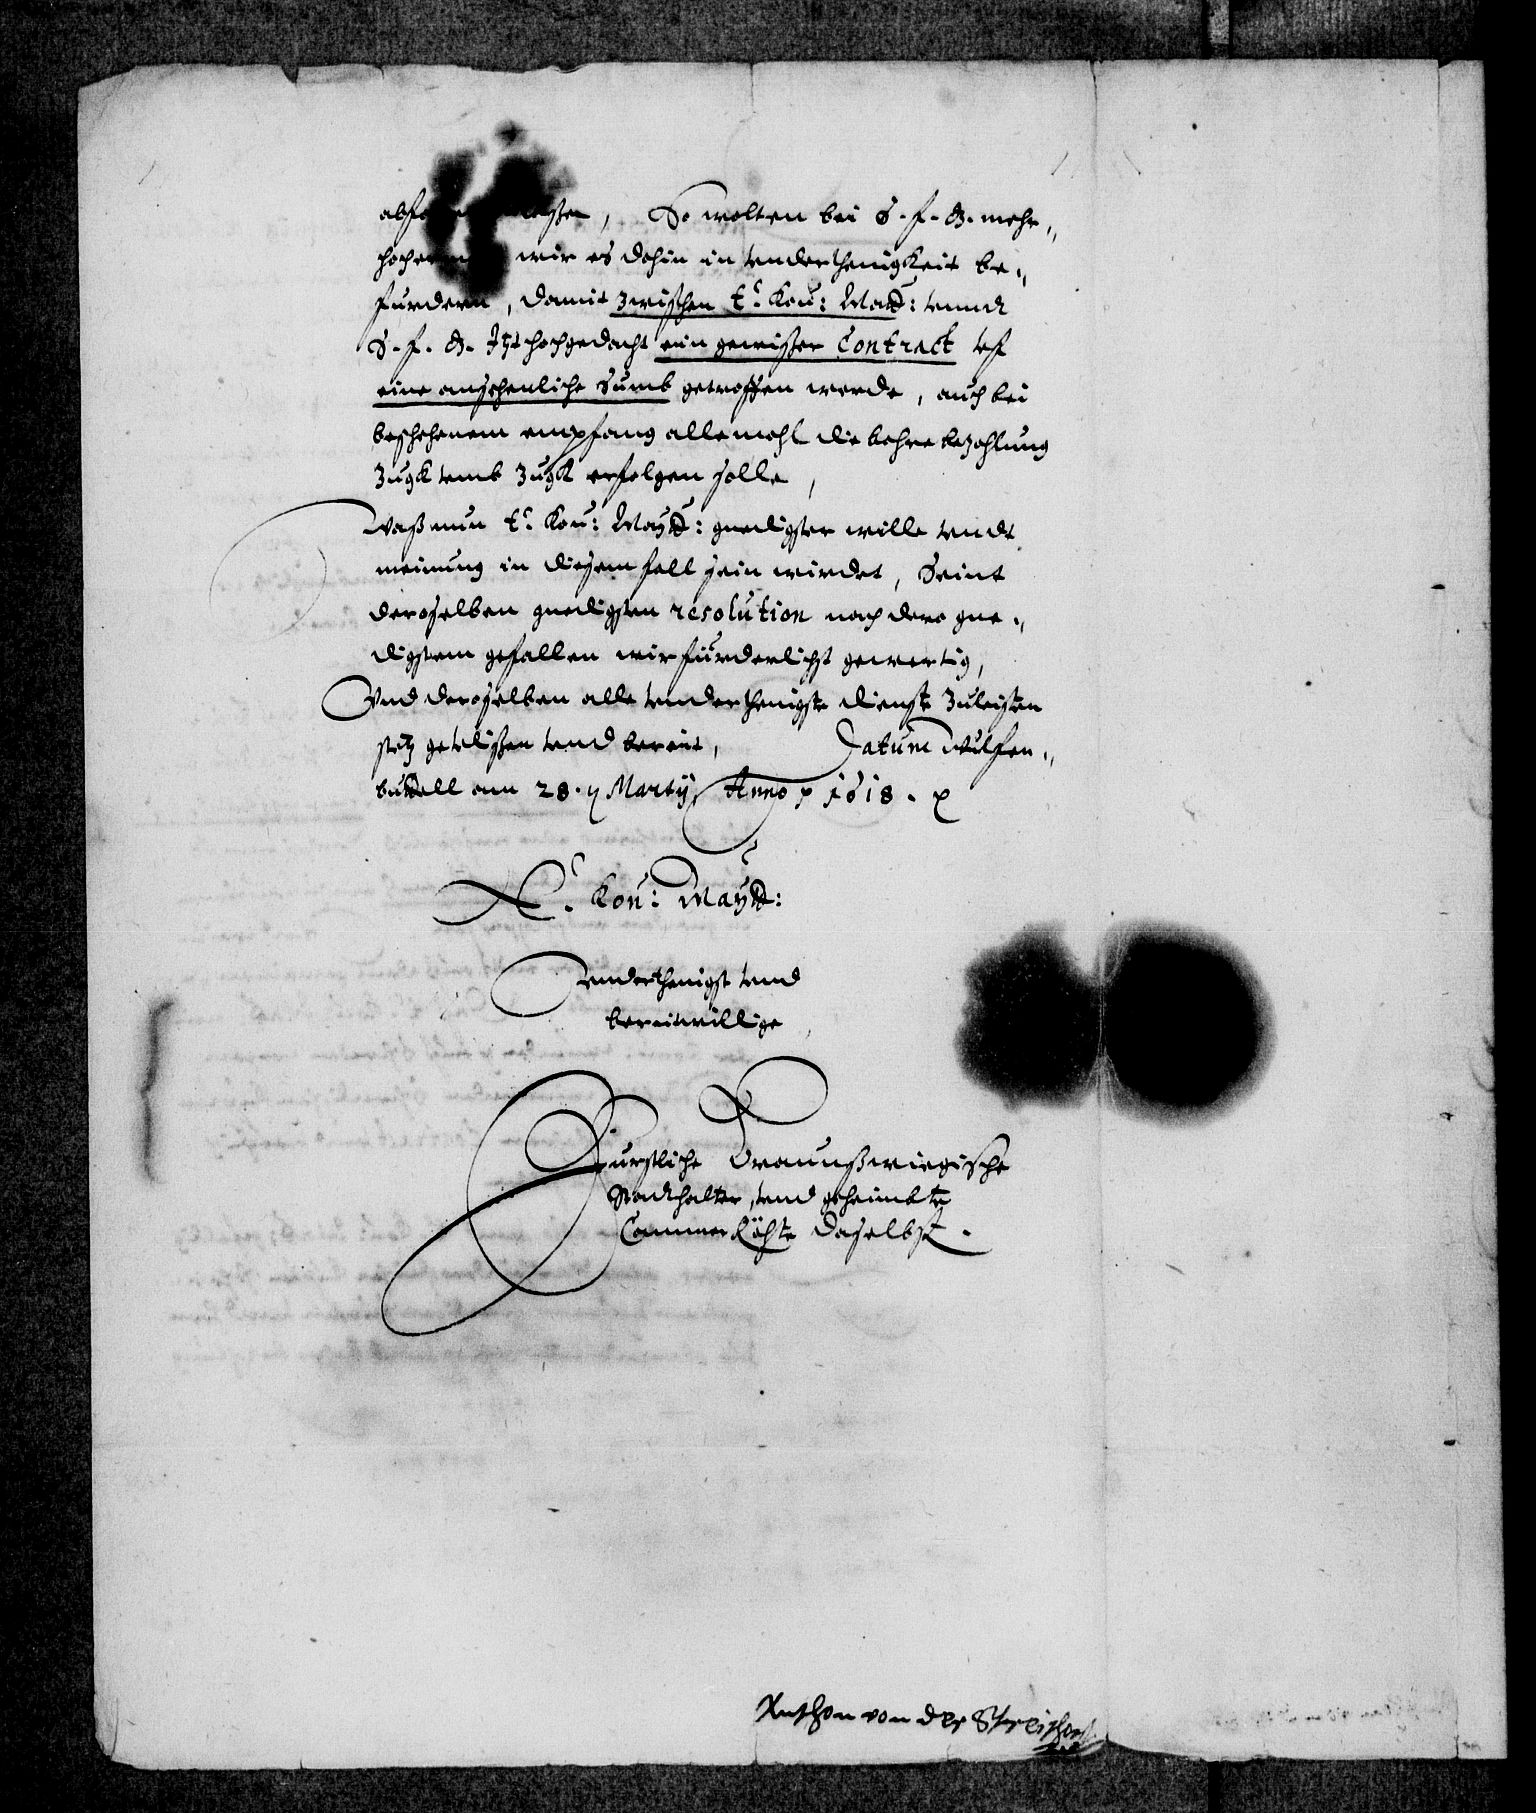 So wolten bei S. f. G. mehr„
wir es dahin in vnderthenigkeit be„
furdern, damit zwischen E. Kön: Maytt: vnndt
S. f. G. itzt hochgedacht ein gewisser Contract vf
eine ansehenliche Sumb getroffen werde, auch bei
beschehenem empfang allemahl die bahre bezahlung
Zugk vmb Zugk erfolgen solle,
Waß nun E. Kön: Maytt: gnedigster wille vndt
meinung in diesem fall sein wirdet, Seint
deroselben gnedigsten resolution nach dero gne„
digstem gefallen wir fürderlichst gewertig,
Vnd deroselben alle vnderthenigste dienste Zuleisten
stetz geulißen vnd bereit, Datum Wulffen„
buttell am 28. Martij Anno 1618.
E. Kön: Maytt:
vnderthenigst vnd
bereitwillige
Furstliche Braunßwiegische
Stadthalter, vnd geheimbte
Cammer Räthe daselbst.
Anthon von der Streithorst